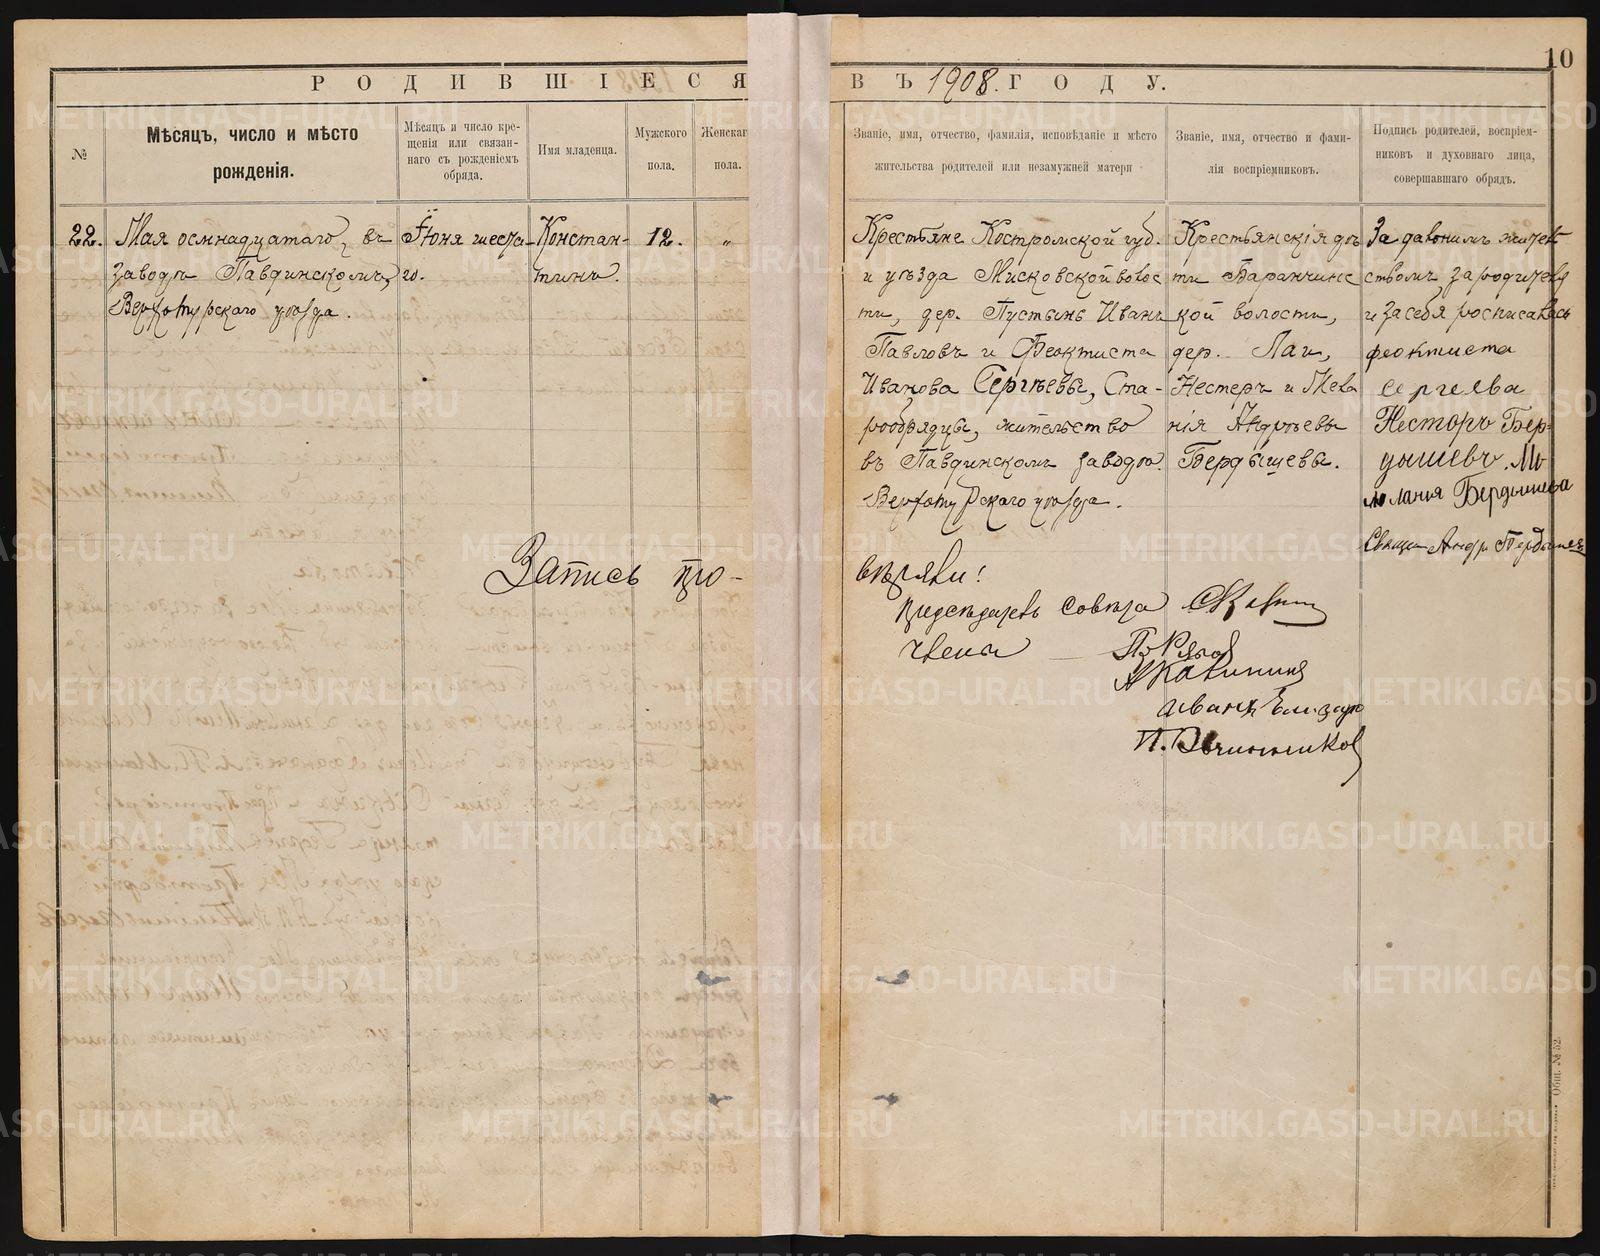 10
РОДИВШІЕСЯ ВЪ 1908. ГОДУ.
№
Мѣсяцъ, число и мѣсто
рожденія.
Мѣсяцъ и число кре-
щенія или связан-
наго съ рожденіемъ
обряда.
Имя младенца.
Мужского
пола.
Женскаг
пола.
Званіе, имя, отчество, фамилія, исповѣданіе и мѣсто
жительства родителей или незамужней матери
Званіе, имя, отчество и фами-
лія воспріемниковъ.
Подпись родителей, воспріем-
никовъ и духовнаго лица,
совершавшаго обрядъ.
22.
Мая осмнадцатаго, въ
заводѣ Павдинскомъ,
Верхотурскаго уѣзда.
Іюня шеста-
го.
Констан-
тинъ.
12.
„
Крестьяне Костромской губ.
и уѣзда Мисковской волос
ти, дер. Пустынь Иванъ
Павловъ и Феоктиста
Иванова Сергѣевы, Ста-
рообрядцы, жительство
въ Павдинскомъ заводѣ
Верхотурскаго уѣзда.
Крестьянскія дѣ
ти Баранчинс
кой волости,
дер. Лаи,
Нестеръ и Мела
нія Андрѣевы
Бердышевы.
За
ством за родителя
и за себя росписалась
феоктиста
сергеева
Несторъ Бер-
дышевъ. Ме
лания Бердышева
Свящ. Андр Бердышевъ
Запись про-
вѣряли!
предсѣдатель Совѣта
члены
Калинина
Иванъ Елизаро
И. Овчинников
Общ. № 52.
METRIKI.GASO-URAL.RU